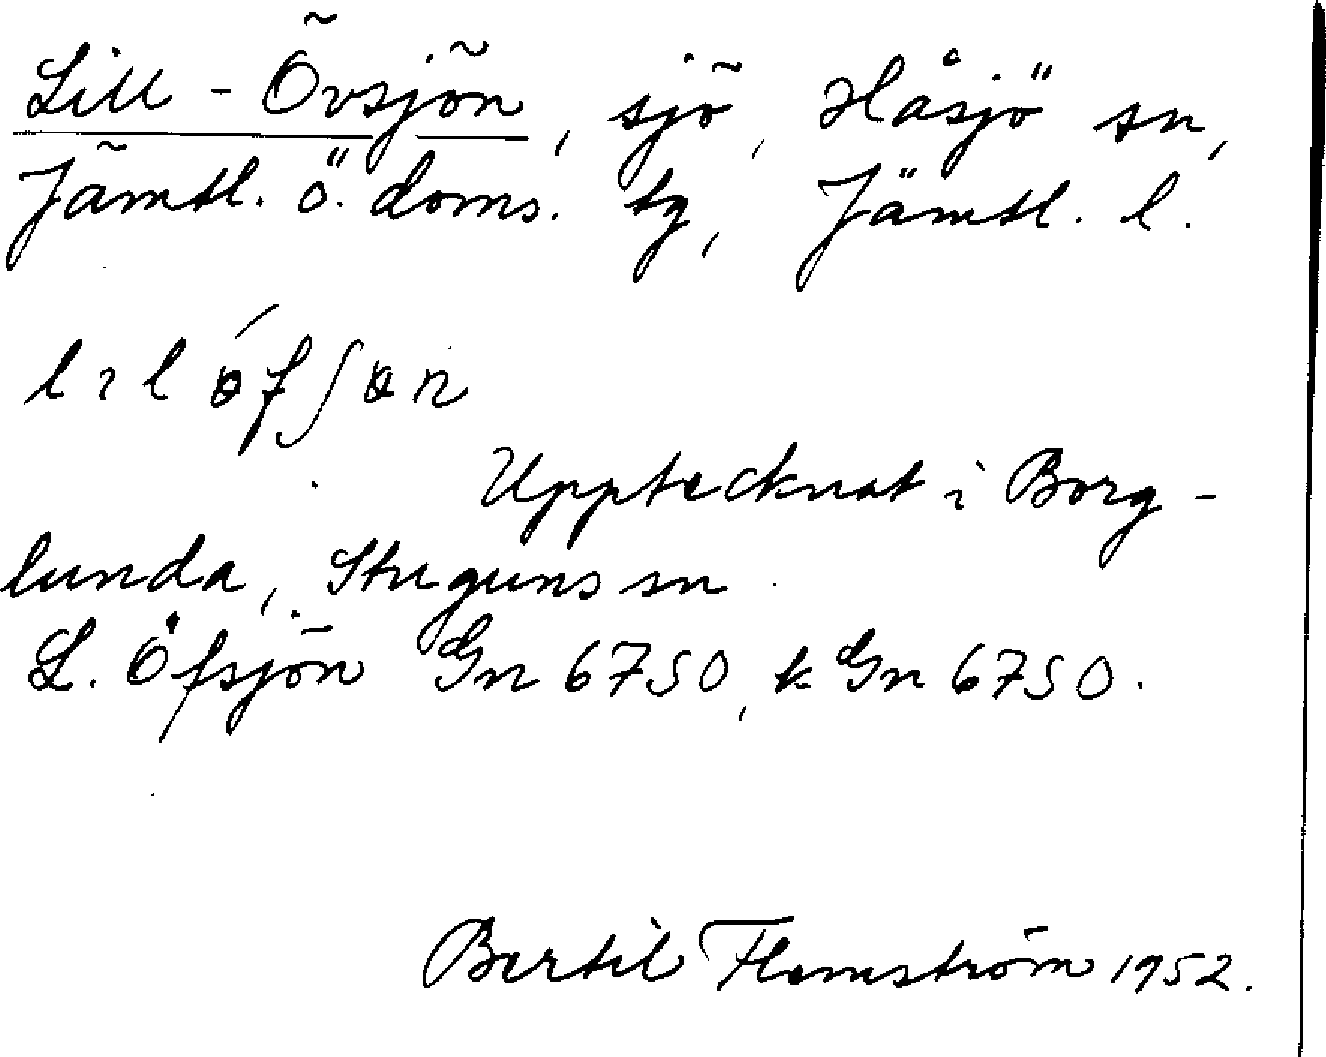 Lill-Övsjön, sjö, Håsjö sn,
Jämtl. ö. doms. tg, Jämtl. l.
Upptecknat i Borg-
lunda, Stuguns sn
L. Öfsjön Gn 6750, k Gn 6750.
Bertil Flemström 1952.